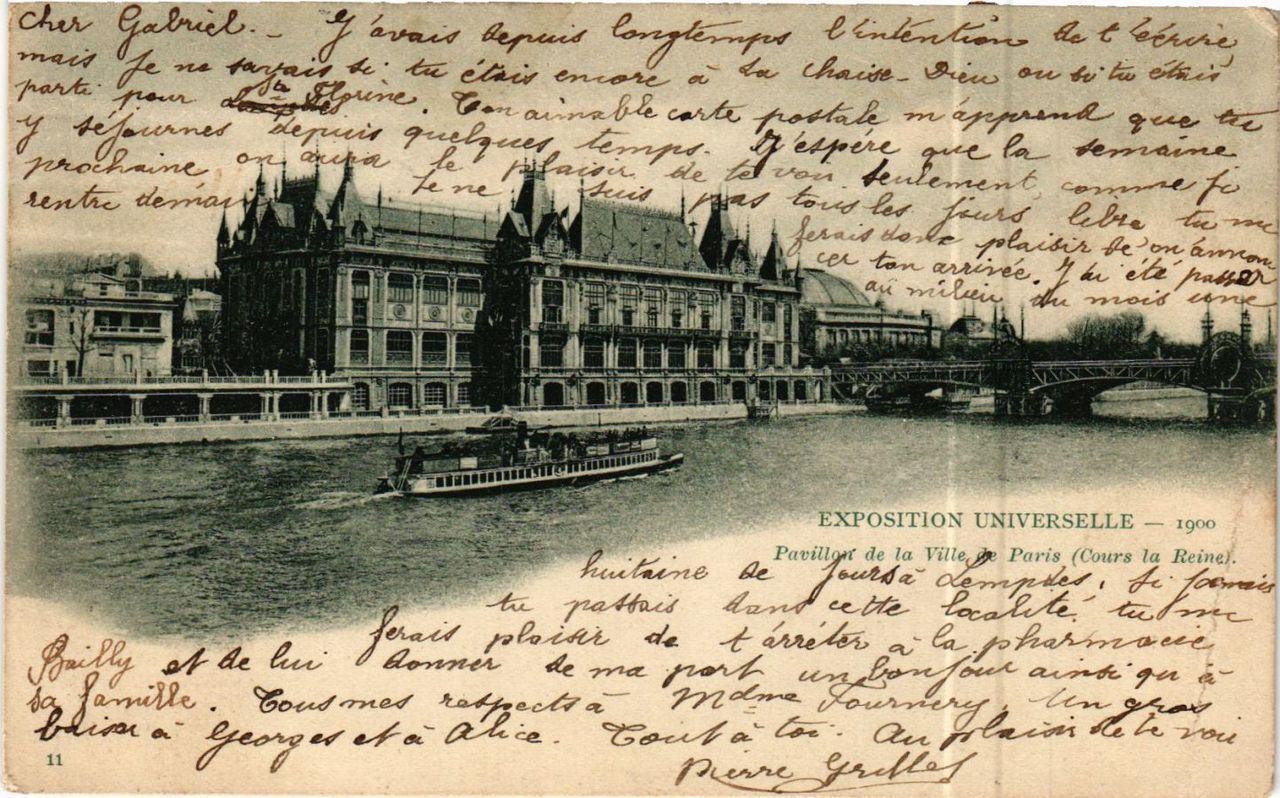 Cher Gabriel._ J'avais depuis longtemps l'intention de t'écrire,
mais je ne savais si tu étais encore à la Chaise-Dieu ou si tu étais
parti pour Ste Florine. Ton aimable carte postale m'apprend que tu
y séjournes depuis quelques temps. J'espére que la semaine
prochaine on aura le plaisir de te voir seulement, comme je
ne suis pas tous les jours libre tu me
ferais donc plaisir de m'annon-
cer ton arrivée. J'ai été passer
au milieu du mois une
EXPOSITION UNIVERSELLE — 1900
Pavillon de la Ville de Paris (Cours la Reine).
huitaine de jours à Lempdes, si jamais
tu passais dans cette localité, tu me
ferais plaisir de t'arréter à la pharmacie
Bailly et de lui donner de ma part un bonjour ainsi qu'à
sa famille. Tous mes respects à Mdme Fournery, Un gros
baiser à Georges et à Alice. Tout à toi. Au plaisir de te voir
Pierre
11